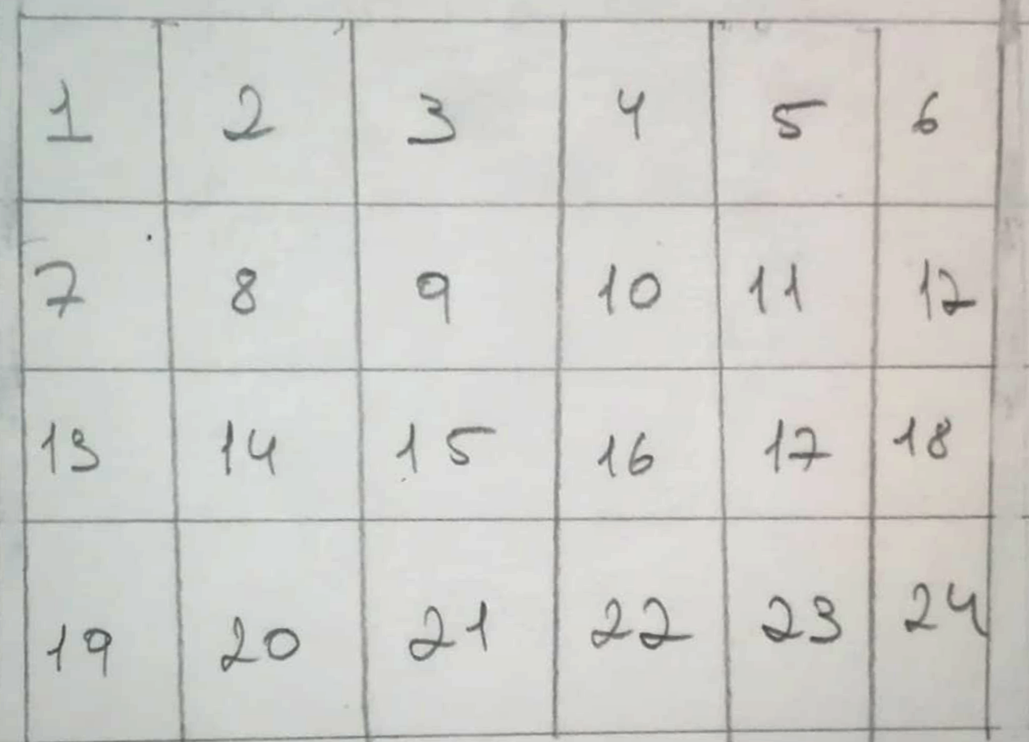 1 2 3 4 5 6
7 8 9 10 11 12
13 14 15 16 17 18
19 20 21 22 23 24